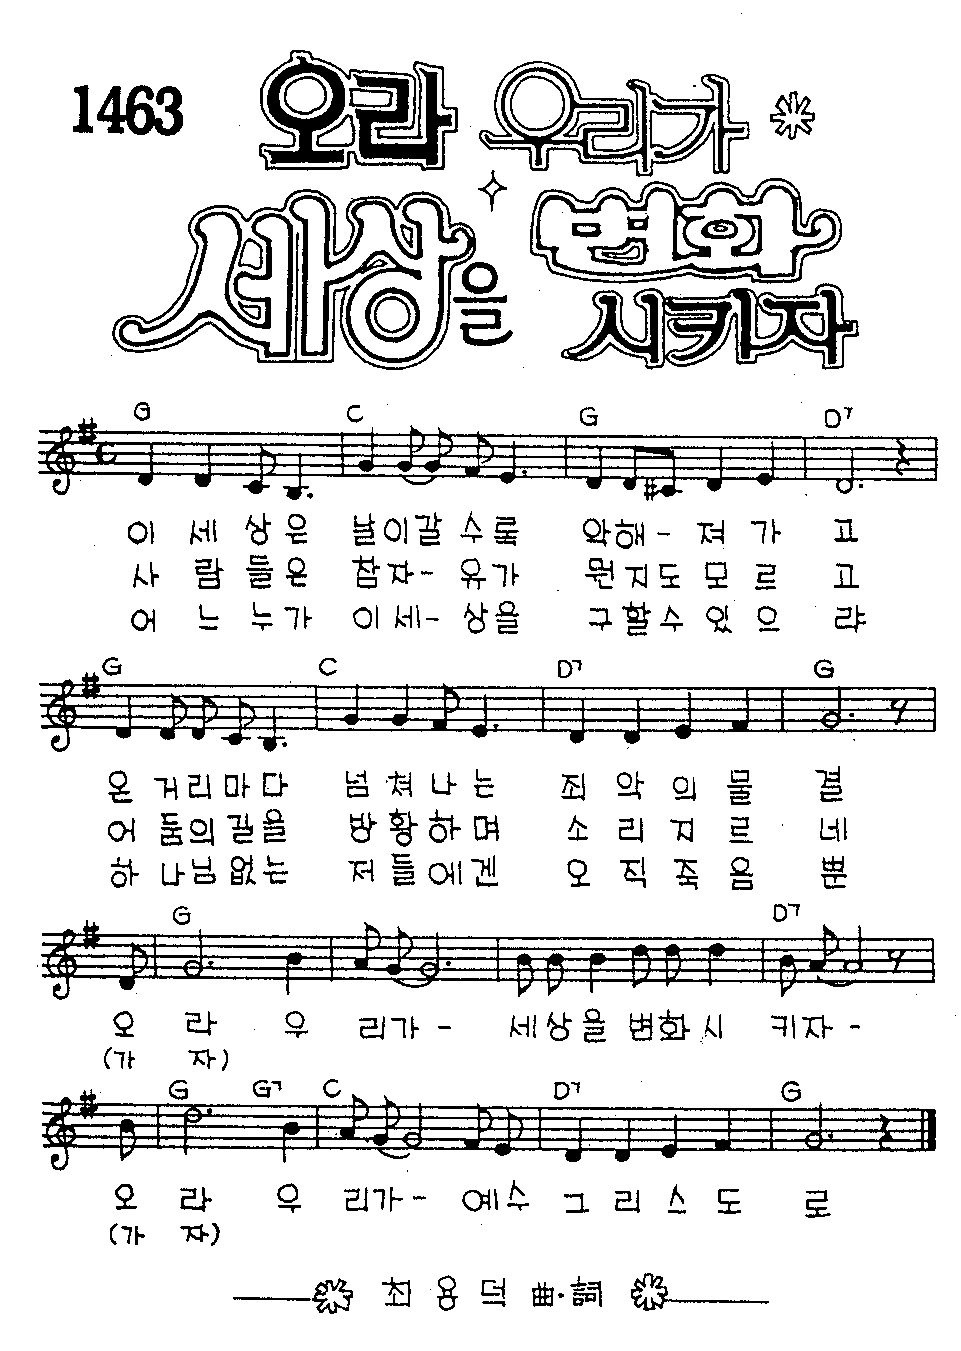 1463
오라 우리가
세상을 변화
시키자
G C G D7
이 세 상 은 날이갈 수록 악해 - 져 가 고
사 람 들 은 참자 - 유가 뭔지도 모 르 고
어 느 누가 이세 - 상을 구할수 있 으 랴
G C D7 G
온 거리마다 넘 쳐 나 는 죄 악 의 물 결
어 둠의길을 방 황 하 며 소 리 지 르 네
하 나님없는 저 들에겐 오 직 죽 음 뿐
G D7
오 라 우 리가 - 세상을 변화시 키자 -
(가 자)
G G7 C D7 G
오 라 우 리가 - 예수 그 리 스 도 로
(가 자)
최 용 덕 曲·詞